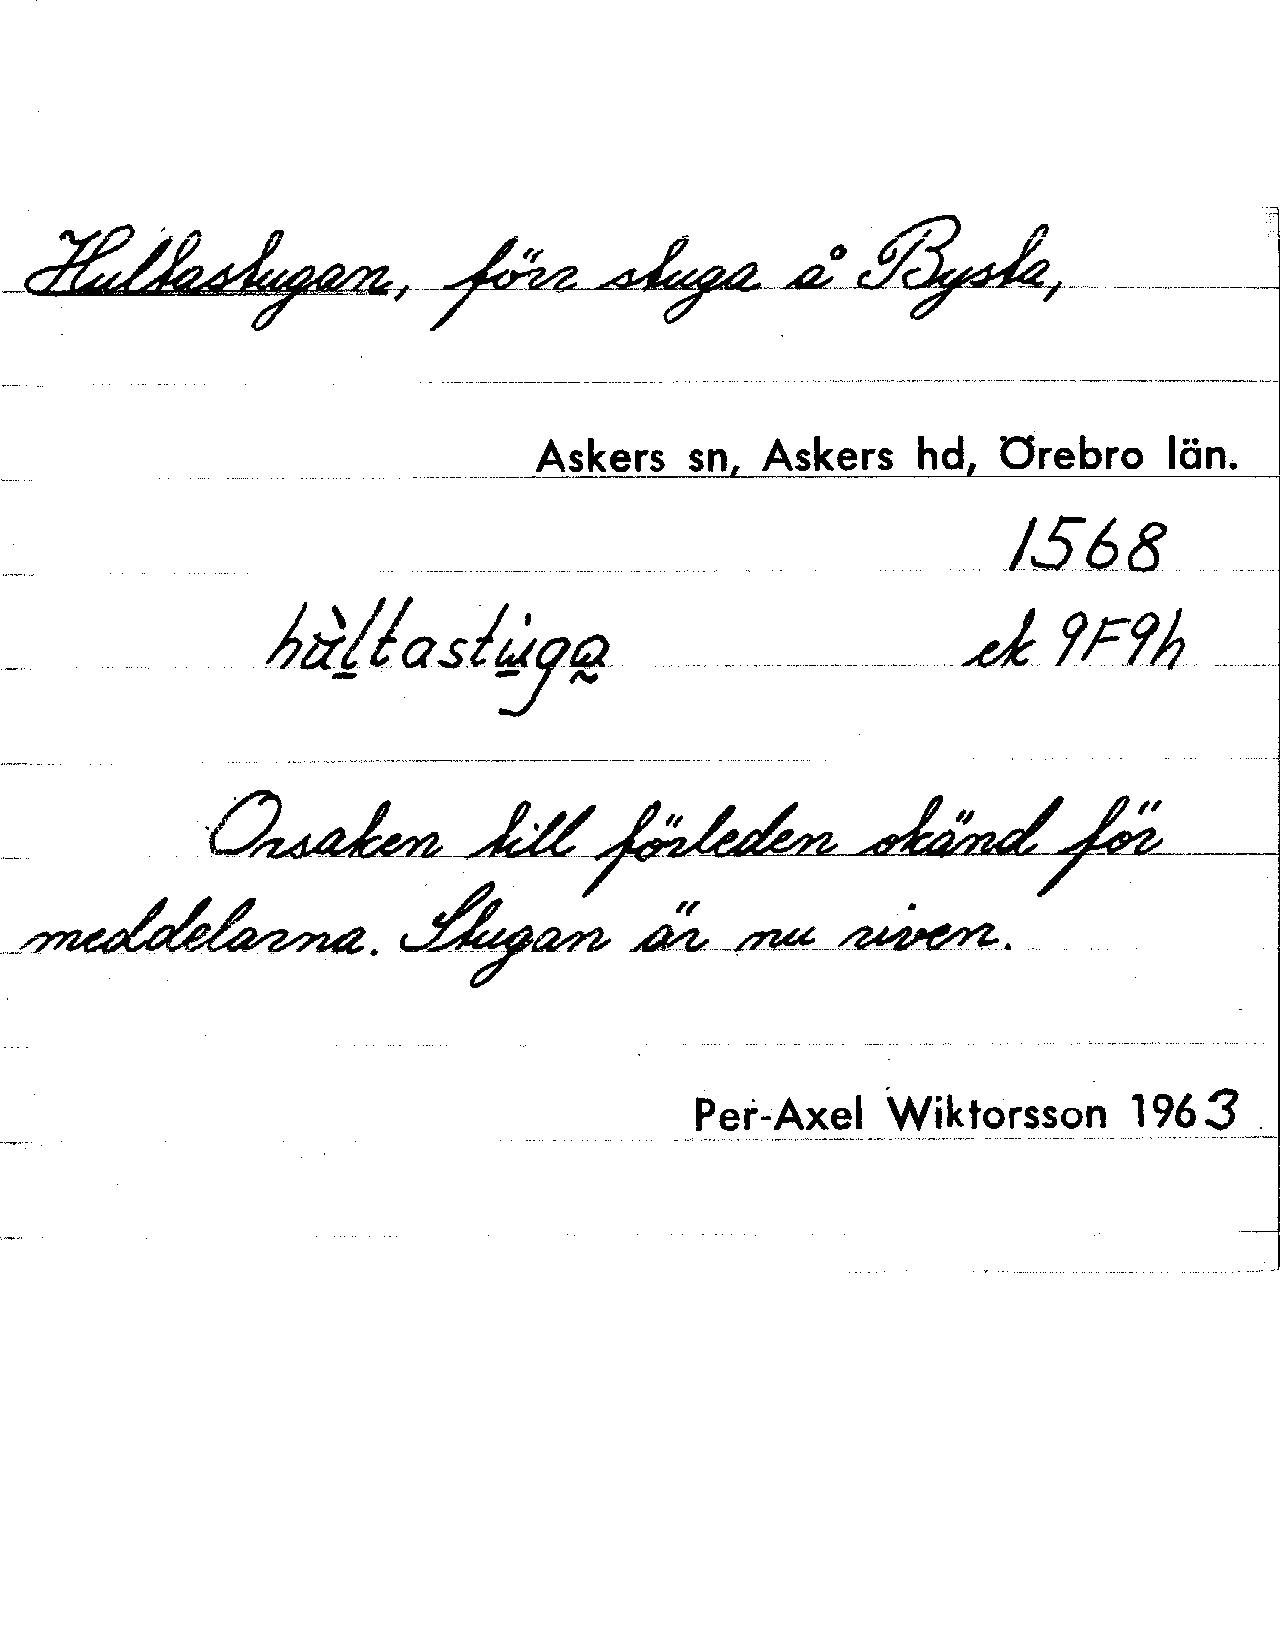 Hultastugan, förr stuga å Bysta,
Askers sn, Askers hd, Örebro län.
1568
hùltastu̇ga ek 9F9h
Orsaken till förleden okänd för
meddelarna. Stugan är nu riven.
Per-Axel Wiktorsson 1963